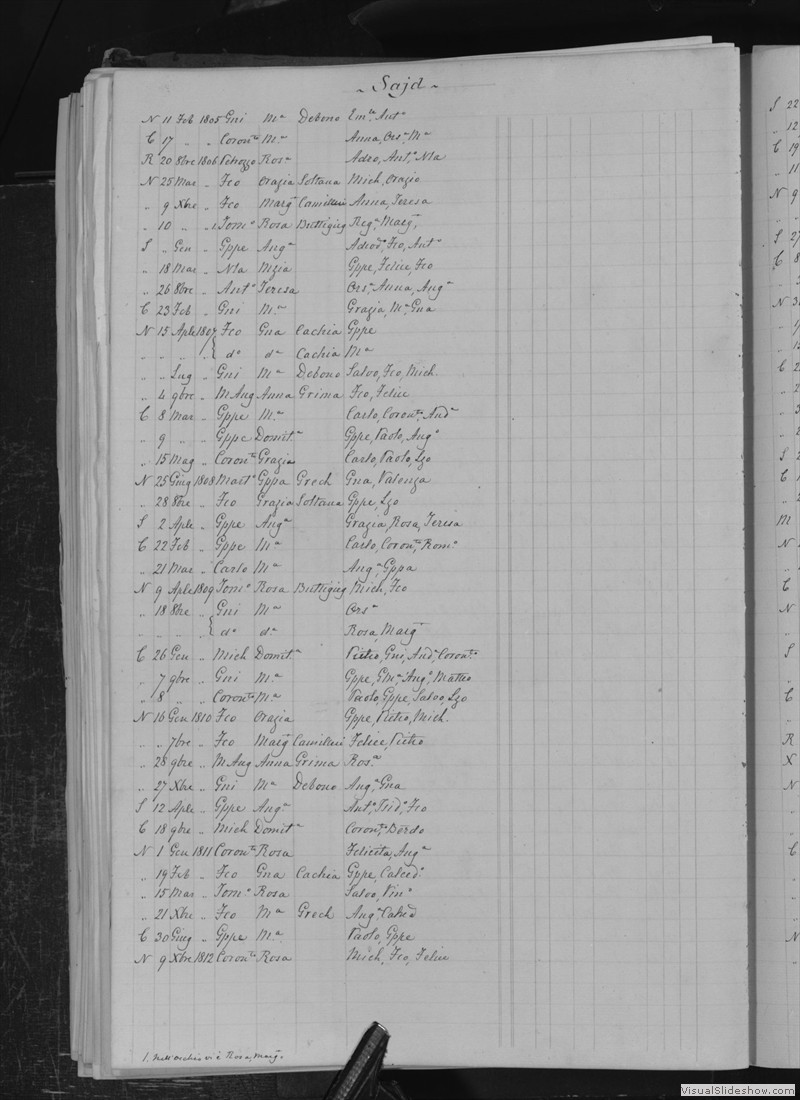 ~ Sajd ~
N 11 Feb 1805 Gni Ma Debono Emla, Anta
C 17 " " Coronta Ma Anna, Orsa, Ma
R 20 8bre 1806 Petrozzo Rosa Adeo, Anto, Nla
N 25 Mar " Fco Orazia Soltana Mich, Orazio
" 9 Xbre " Fco Marga Camilleri Anna, Teresa
" 10 " " 1 Tomo Rosa Buttigieg Rega, Marga,
S " Gen " Gppe Anga Adeoda, Fco, Anto
" 18 Mar " Nla Mzia Gppe, Felice, Fco
" 26 8bre " Anto Teresa Orsa, Anna, Anga
C 23 Feb " Gni Ma Grazia, Ma, Gna
N 15 Aple 1807 { Fco Gna Cachia Gppe
" " " " { do da Cachia Ma
" " Lug " Gni Ma Debono Salvo, Fco, Mich.
" 4 9bre " M Ang Anna Grima Fco, Felice
C 8 Mar " Gppe Ma Carlo, Coronta, Anda
" 9 " " Gppe Domita Gppe, Paolo, Ango
" 15 Mag " Coronto Grazia Carlo, Paolo, Lzo
N 25 Giug 1808 Marto Gppa Grech Gna, Valenza
" 28 8bre " Fco Grazia Soltana Gppe, Lzo
S 2 Aple " Gppe Anga Grazia, Rosa, Teresa
C 22 Feb " Gppe Ma Carlo, Coronta, Romo
" 21 Mar " Carlo Ma Anga, Gppa
N 9 Aple 1809 Tomo Rosa Buttigieg Mich, Fco
" 18 8bre " { Gni Ma Orsa
" " " " { do da Rosa, Marga
C 26 Gen " Mich Domita Pietro, Gni, Anda, Coronta
" 7 9bre " Gni Ma Gppe, Gma, Ango, Matteo
" 8 " " Coronto Ma Paolo, Gppe, Salvo, Lzo
N 16 Gen 1810 Fco Orazia Gppe, Pietro, Mich.
" " 7bre " Fco Marga Camilleri Felice, Pietro
" 28 9bre " M Ang Anna Grima Rosa
" 27 Xbre " Gni Ma Debono Anga, Gna
S 12 Aple " Gppe Anga Anto, Isido, Fco
C 18 9bre " Mich Domita Coronta, Berdo
N 1 Gen 1811 Coronto Rosa Felicita, Anga
" 19 Feb " Fco Gna Cachia Gppe, Calcedo
" 15 Mar " Tomo Rosa Salvo, Vino
" 21 Xbre " Fco Ma Grech Anga, Calced
C 30 Giug " Gppe Ma Paolo, Gppe
N 9 Xbre 1812 Coronto Rosa Mich, Fco, Felice
1. Nell'archivio è Rosa, Marga
VisualSlideshow.com